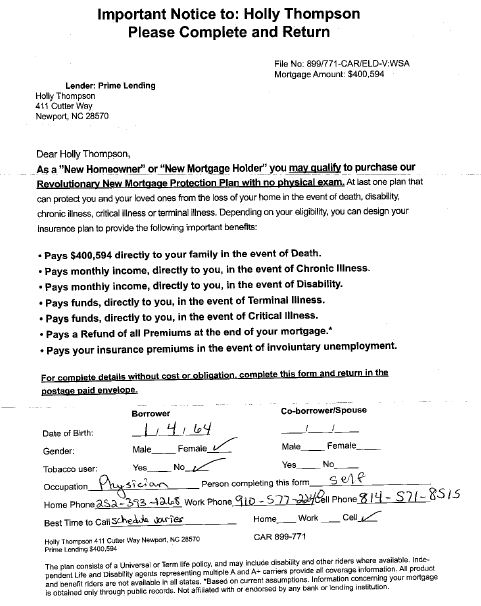 Important Notice to: Holly Thompson
Please Complete and Return
File No: 899/771-CAR/ELD-V:WSA
Mortgage Amount: $400,594
Lender: Prime Lending
Holly Thompson
411 Cutter Way
Newport, NC 28570
Dear Holly Thompson,
As a "New Homeowner" or "New Mortgage Holder" you may qualify to purchase our
Revolutionary New Mortgage Protection Plan with no physical exam. At last one plan that
can protect you and your loved ones from the loss of your home in the event of death, disability,
chronic illness, critical illness or terminal illness. Depending on your eligibility, you can design your
Insurance plan to provide the following important benefits:
• Pays $400,594 directly to your family in the event of Death.
• Pays monthly income, directly to you, in the event of Chronic Illness.
• Pays monthly income, directly to you, in the event of Disability.
• Pays funds, directly to you, in the event of Terminal Illness.
• Pays funds, directly to you, in the event of Critical Illness.
• Pays a Refund of all Premiums at the end of your mortgage.*
• Pays your insurance premiums in the event of involuntary unemployment.
For complete details without cost or obligation, complete this form and return in the
postage paid envelope.
Borrower Co-borrower/Spouse
Date of Birth: 1/4/64 __/__/__
Gender: Male___ Female ✓ Male____ Female____
Tobacco user: Yes___ No ✓ Yes____ No____
Occupation Physician Person completing this form self
Home Phone 252-393-1268 Work Phone 910-577-2240 Cell Phone 814-571-8515
Best Time to Call schedule varies Home___ Work ___ Cell ✓
Holly Thompson 411 Cutter Way Newport, NC 28570 CAR 899-771
Prime Lending $400,594
The plan consists of a Universal or Term life policy, and may include disability and other riders where available. Inde-
pendent Life and Disability agents representing multiple A and A+ carriers provide all coverage information. All product
and benefit riders are not available in all states. *Based on current assumptions. Information concerning your mortgage
is obtained only through public records. Not affiliated with or endorsed by any bank or lending institution.